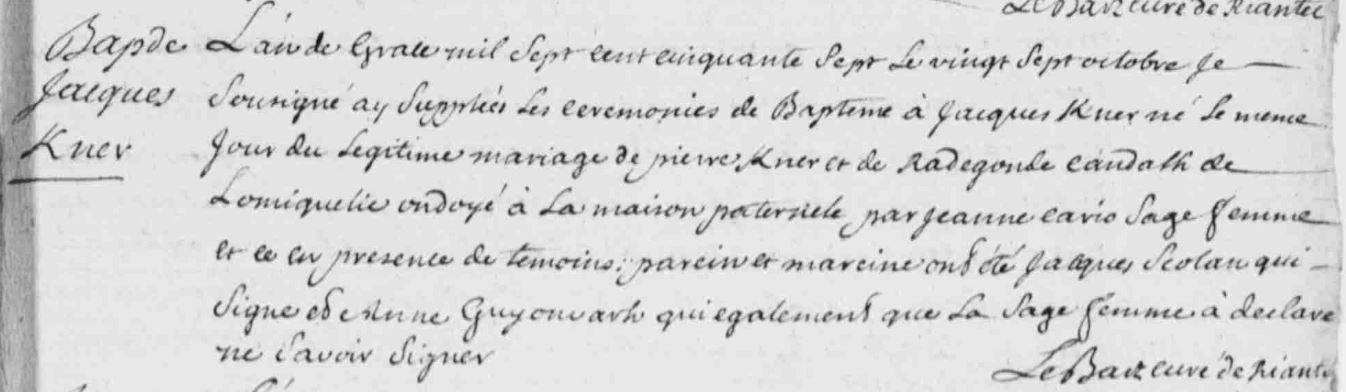 Le Barz curé de Riantec
Bap de
Jacques
Kner
L'an de Grace mil Sept cent cinquante Sept Le vingt Sept octobre Je
Sousigné ay Supplées Les ceremonies de Bapteme à Jacques Kner né Le meme
Jour du Legitime mariage de pierre Kner et de Radegonde Caudath de
Lomiquelic ondoyé à La maison paternele par Jeanne cario Sage femme
et ce en presence de temoins; parein et mareine ont été Jacques Scolan qui
Signe et Anne Guyonvarh qui egalement que La Sage femme à declare
ne Savoir Signer
Le Barz curé de Riantec